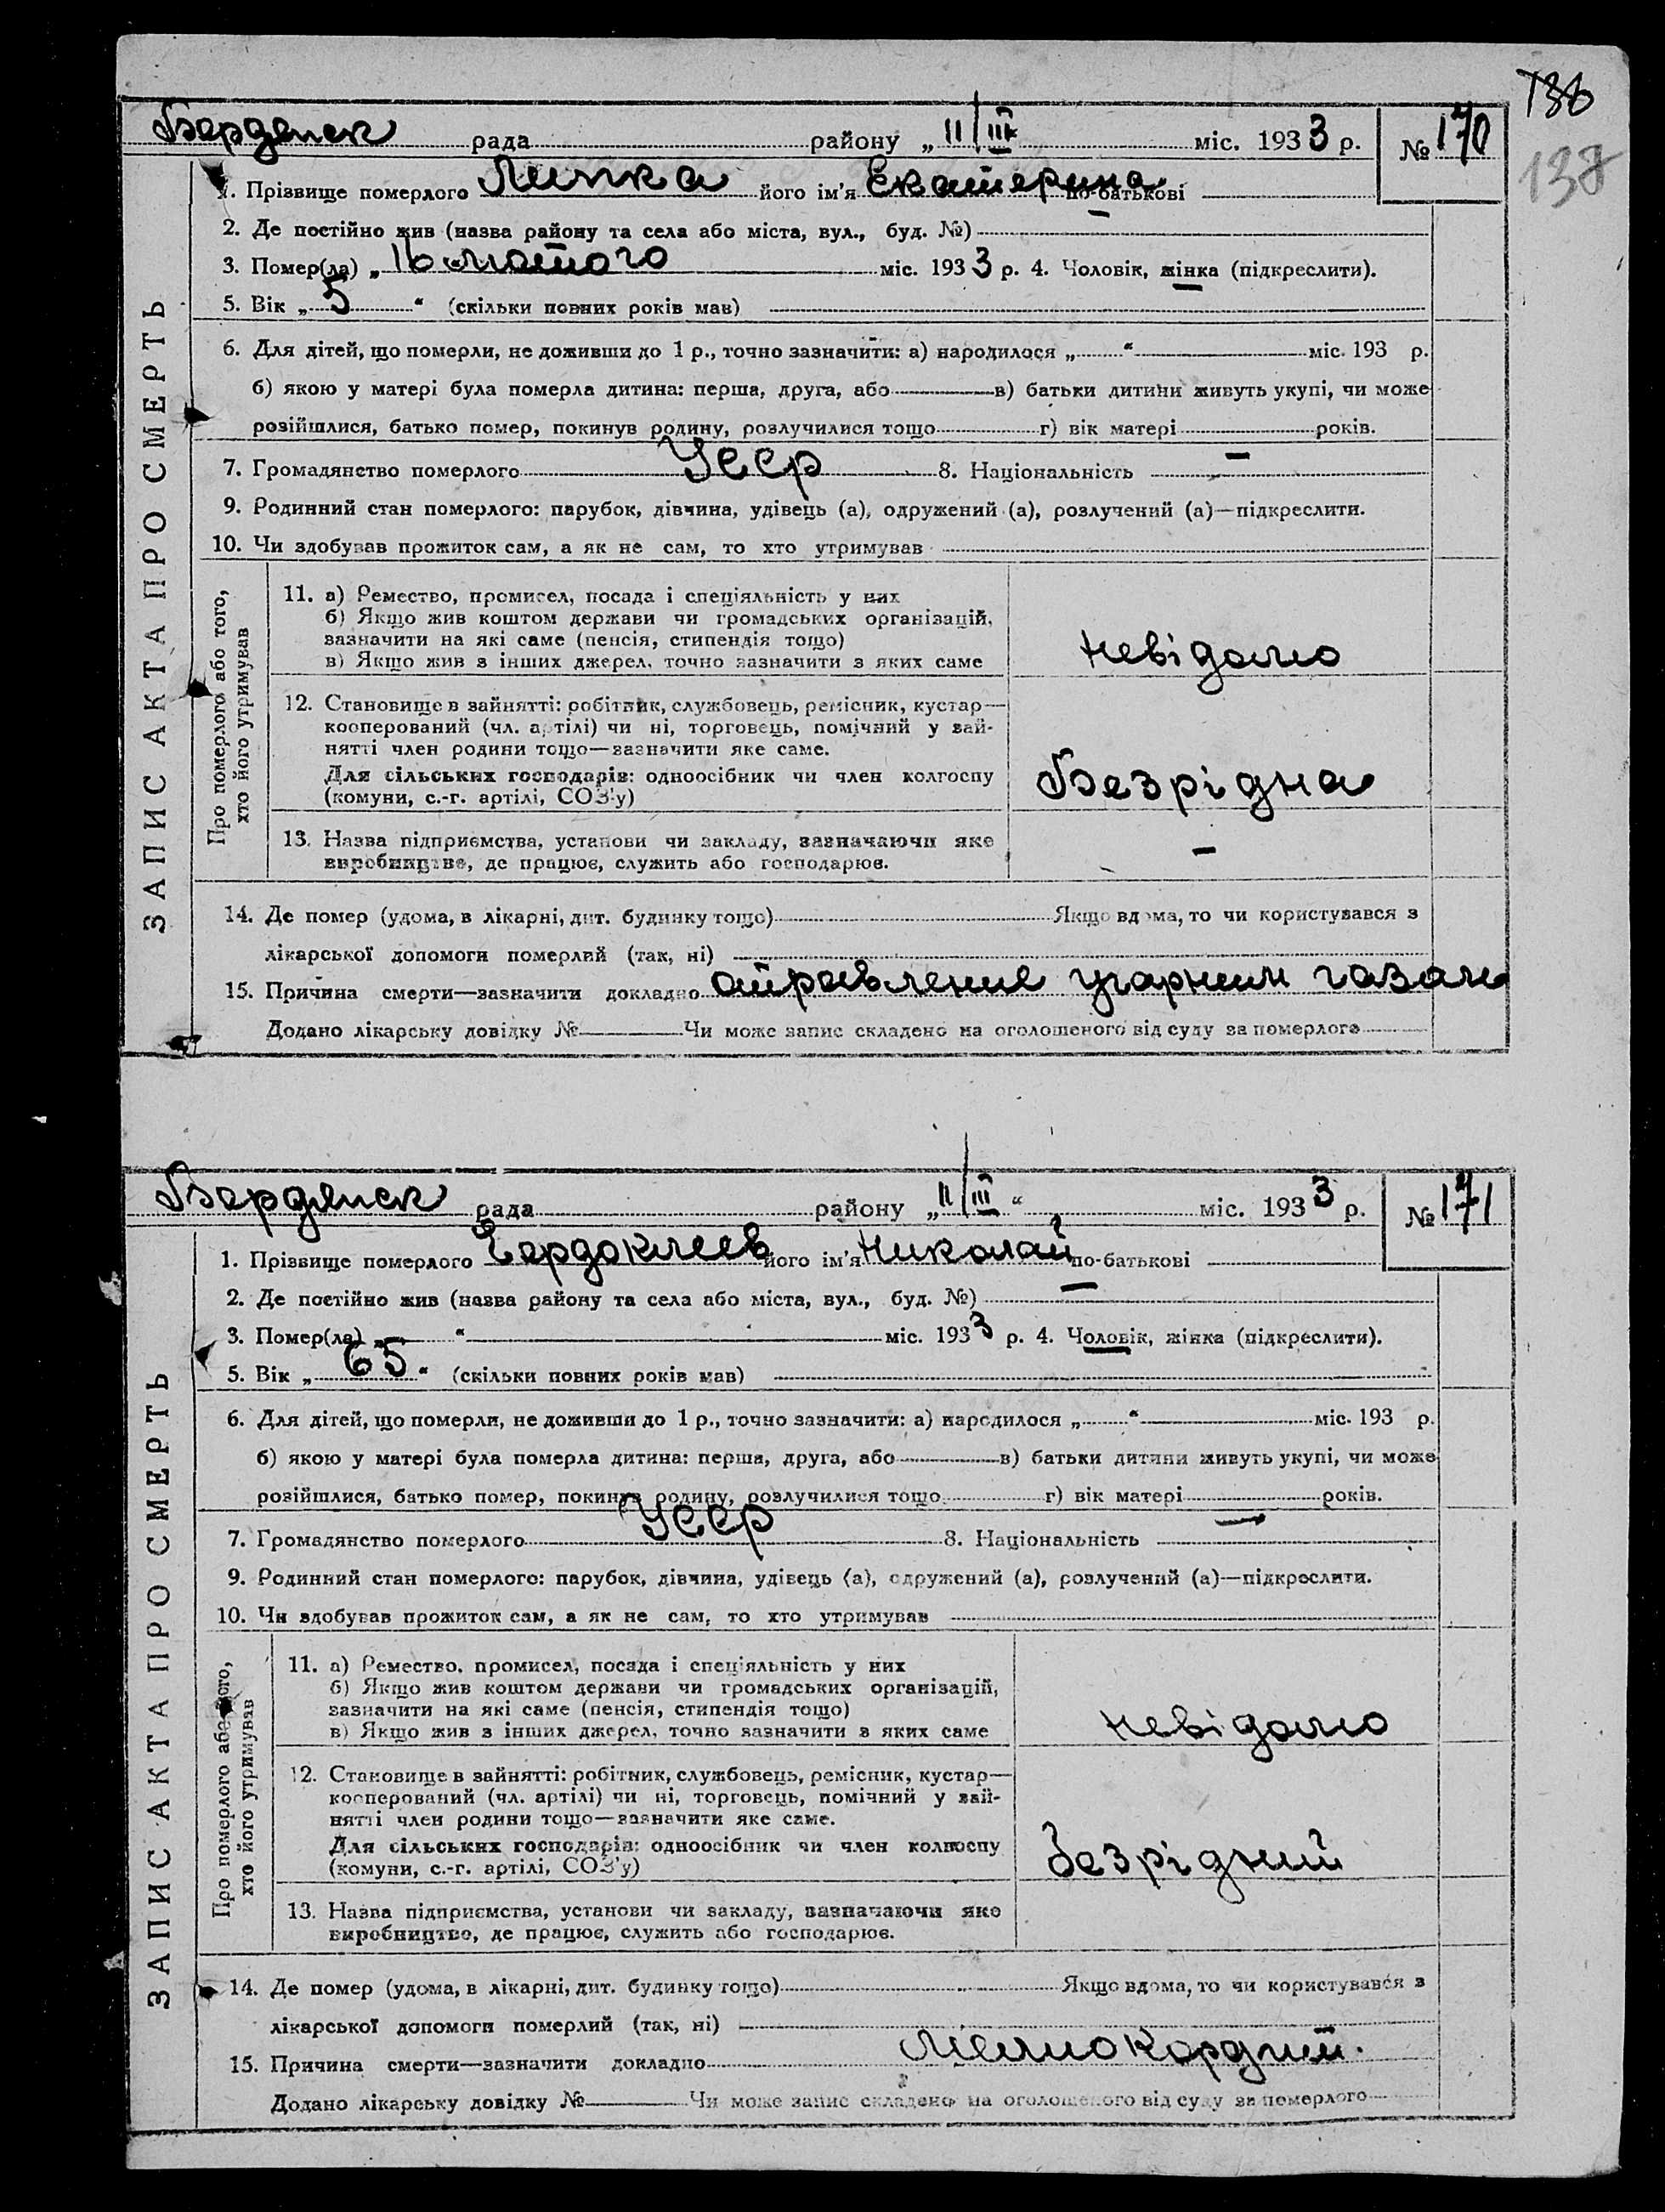 138
138
Бердянск рада району „11/III міс. 1933 р. № 170
ЗАПИС АКТА ПРО СМЕРТЬ
1. Прізвище померлого Липка його ім'я Екатерина по-батькові —
2. Де постійно жив (назва району та села або міста, вул., буд. №)
3. Помер(ла) „16 лютого міс. 1933 р. 4. Чоловік, жінка (підкреслити).
5. Вік „5“ (скільки повних років мав)
6. Для дітей, що померли, не доживши до 1 р., точно зазначити: а) народилося „ “ міс. 193 р.
б) якою у матері була померла дитина: перша, друга, або в) батьки дитини живуть укупі, чи може
розійшлися, батько помер, покинув родину, розлучилися тощо г) вік матері років.
7. Громадянство померлого Усср 8. Національність —
9. Родинний стан померлого: парубок, дівчина, удівець (а), одружений (а), розлучений (а)—підкреслити.
10. Чи здобував прожиток сам, а як не сам, то хто утримував
Про померлого або того,
хто його утримував
11. а) Ремество, промисел, посада і спеціяльність у них
б) Якщо жив коштом держави чи громадських організацій,
зазначити на які саме (пенсія, стипендія тощо)
в) Якщо жив з інших джерел, точно зазначити з яких саме
невідомо
12. Становище в зайнятті: робітник, службовець, ремісник, кустар—
кооперований (чл. артілі) чи ні, торговець, помічний у зай-
нятті член родини тощо—зазначити яке саме.
Для сільських господарів: одноосібник чи член колгоспу
(комуни, с.-г. артілі, СОЗ'у)
Безрідна
13. Назва підприємства, установи чи закладу, зазначаючи яке
виробництво, де працює, служить або господарює.
—
14. Де помер (удома, в лікарні, дит. будинку тощо) Якщо вдома, то чи користувався з
лікарської допомоги померлий (так, ні)
15. Причина смерти—зазначити докладно отравление угарним газом
Додано лікарську довідку № Чи може запис складено на оголошеного від суду за померлого
Бердянск рада району „11/III“ міс. 1933 р. № 171
ЗАПИС АКТА ПРО СМЕРТЬ
1. Прізвище померлого його ім'я Николай по-батькові —
2. Де постійно жив (назва району та села або міста, вул., буд. №)
3. Помер(ла) „ “ міс. 1933 р. 4. Чоловік, жінка (підкреслити).
5. Вік „65“ (скільки повних років мав)
6. Для дітей, що померли, не доживши до 1 р., точно зазначити: а) народилося „ “ міс. 193 р.
б) якою у матері була померла дитина: перша, друга, або в) батьки дитини живуть укупі, чи може
розійшлися, батько помер, покинув родину, розлучилися тощо г) вік матері років.
7. Громадянство померлого Усср 8. Національність —
9. Родинний стан померлого: парубок, дівчина, удівець (а), одружений (а), розлучений (а)—підкреслити.
10. Чи здобував прожиток сам, а як не сам, то хто утримував
Про померлого або того,
хто його утримував
11. а) Ремество, промисел, посада і спеціяльність у них
б) Якщо жив коштом держави чи громадських організацій,
зазначити на які саме (пенсія, стипендія тощо)
в) Якщо жив з інших джерел, точно зазначити з яких саме
невідомо
12. Становище в зайнятті: робітник, службовець, ремісник, кустар—
кооперований (чл. артілі) чи ні, торговець, помічний у зай-
нятті член родини тощо—зазначити яке саме.
Для сільських господарів: одноосібник чи член колгоспу
(комуни, с.-г. артілі, СОЗ'у)
Безрідний
13. Назва підприємства, установи чи закладу, зазначаючи яке
виробництво, де працює, служить або господарює.
14. Де помер (удома, в лікарні, дит. будинку тощо) Якщо вдома, то чи користувався з
лікарської допомоги померлий (так, ні)
15. Причина смерти—зазначити докладно
Додано лікарську довідку № Чи може запис складено на оголошеного від суду за померлого